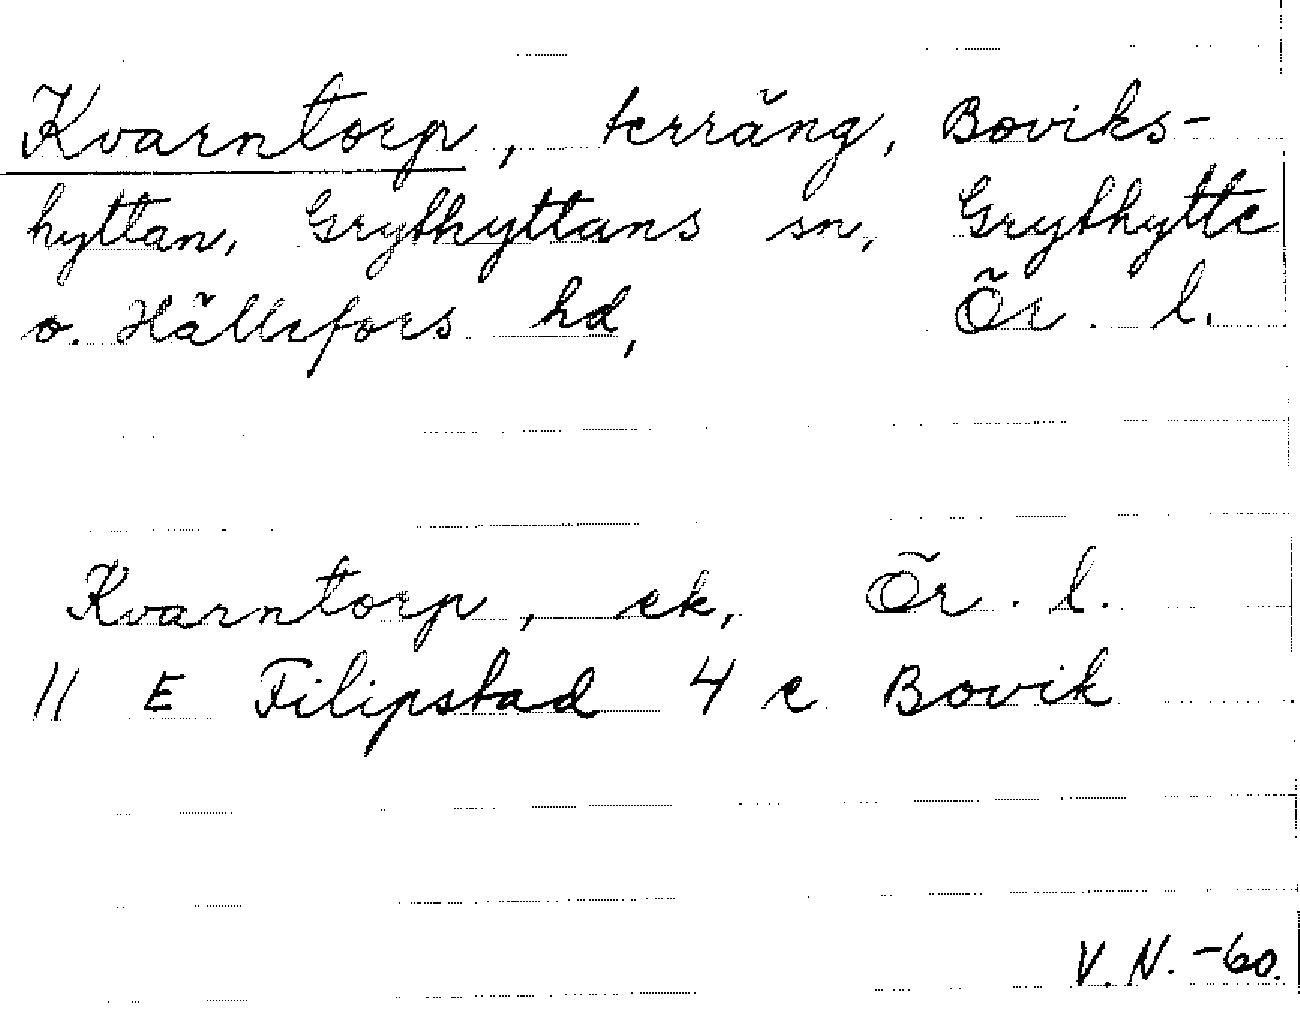 Kvarntorp, terräng, Boviks-
hyttan, Grythyttans sn, Grythytte
o. Hällefors hd, Ör. l.
Kvarntorp, ek, Ör. l.
11 E Filipstad 4 e Bovik
V. N. -60.